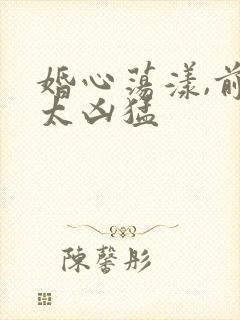 婚心荡漾,前
太凶猛
陈馨彤